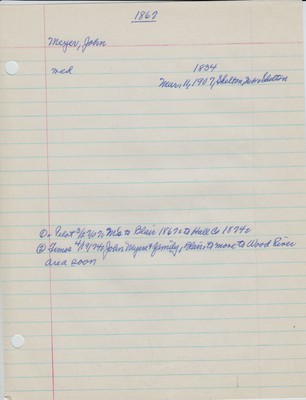 1867
Meyer, John
med
1834
Mar. 11, 1907, Shelton, Nebr Shelton
① Pilot 3/27/07, Mo to Blair 1867 to Hall Co 1874
② Times 4/9/74, John Meyer & family, Blair, to move to Wood River
area soon